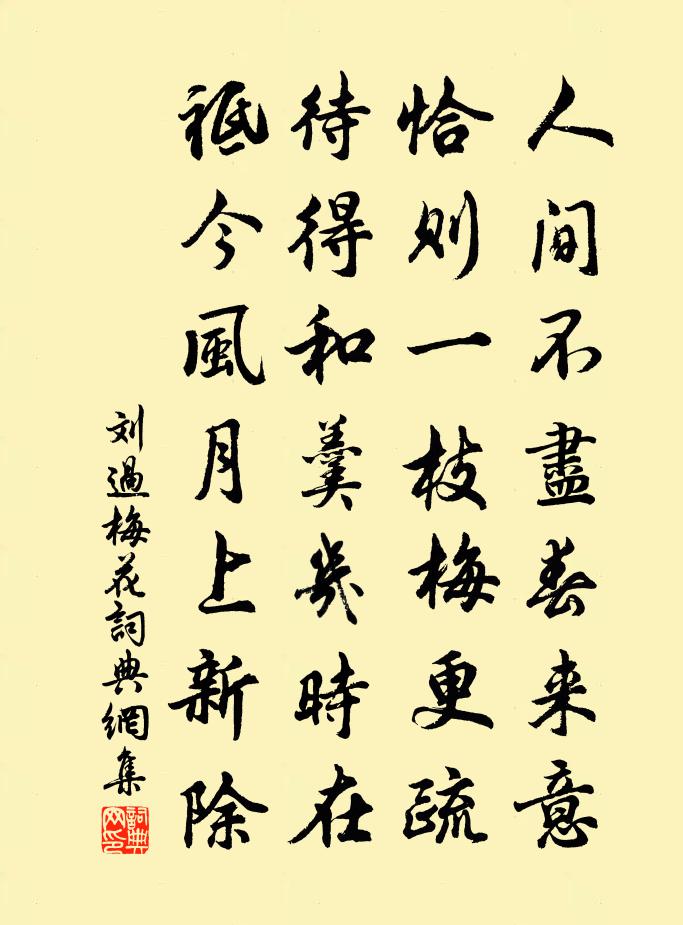 人间不盡春来意
恰则一枝梅更疏
待得和羹幾時在
祗今風月上新除
刘過梅花詞典網集
詞典网印